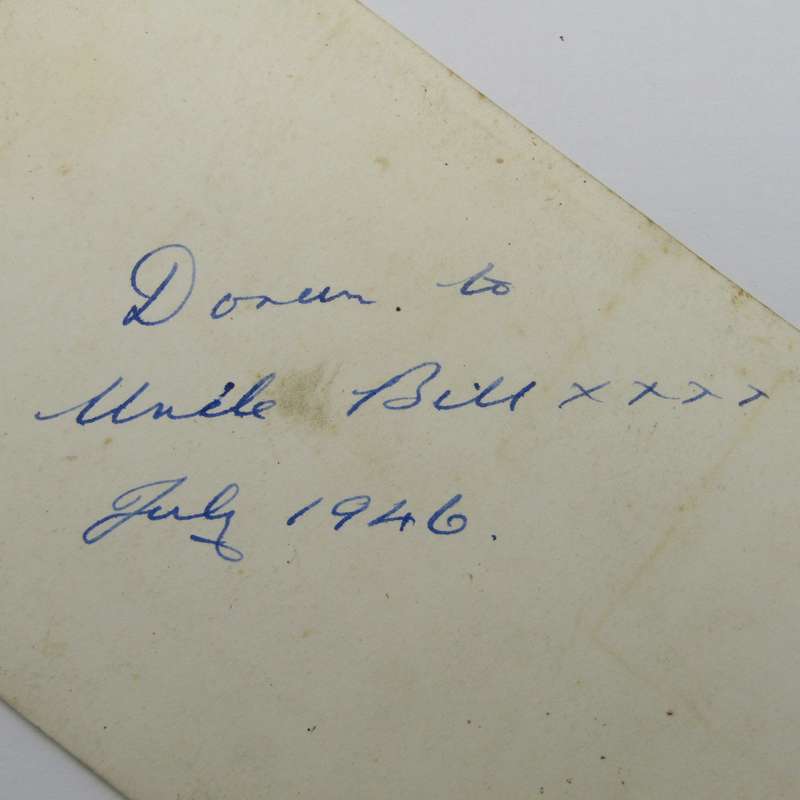 Doreen. to
Uncle Bill xxxx
July 1946.